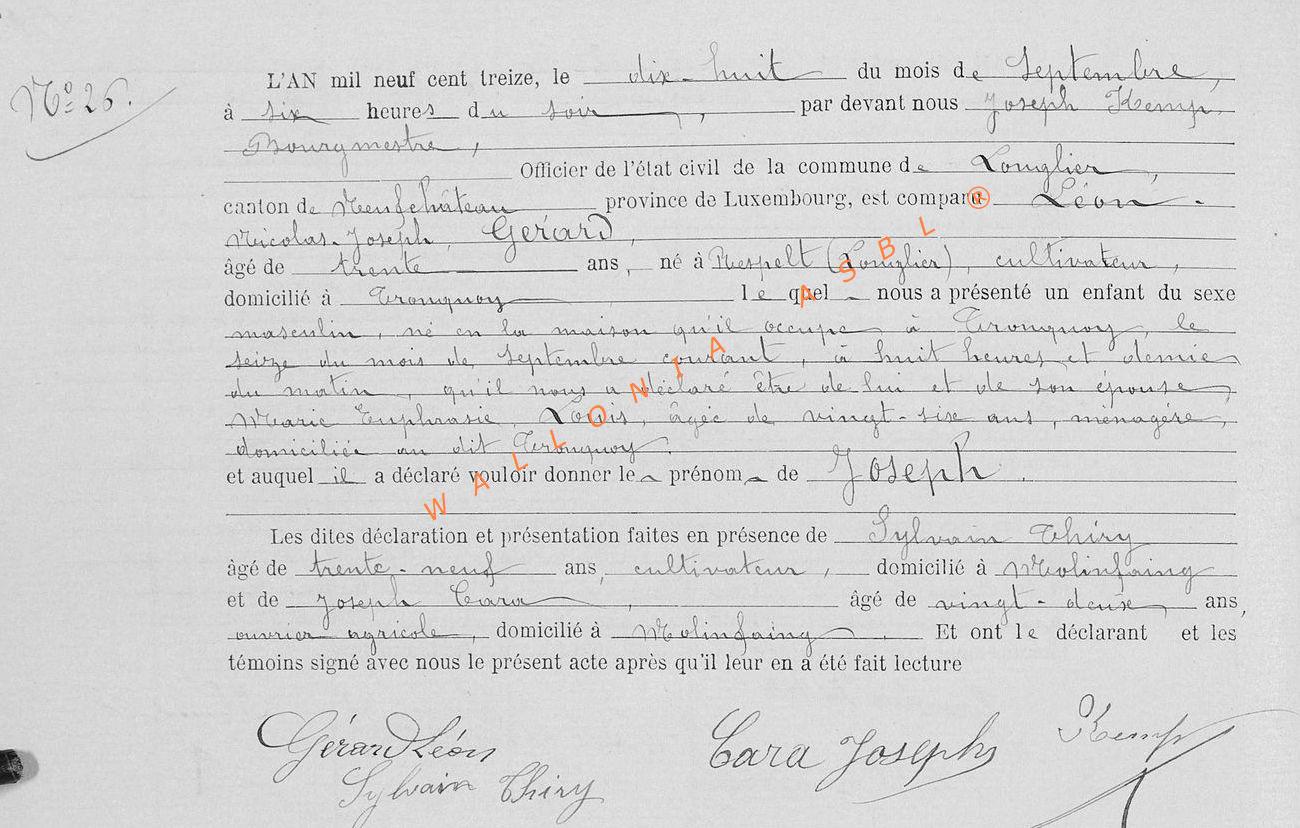 Nº 26.
L'AN mil neuf cent treize, le dix-huit du mois de Septembre,
à six heures du soir, par devant nous Joseph Kemp,
Bourgmestre,
Officier de l'état civil de la commune de Longlier,
canton de Neufchâteau province de Luxembourg, est comparu Léon-
Nicolas-Joseph, Gérard,
âgé de trente ans, né à Respelt (Longlier), cultivateur,
domicilié à Tronquoy, lequel nous a présenté un enfant du sexe
masculin, né en la maison qu'il occupe à Tronquoy, le
seize du mois de Septembre courant, à huit heures et demie
du matin, qu'il nous a déclaré être de lui et de son épouse,
Marie Euphrasie, Louis, âgée de vingt-six ans, ménagère,
domiciliée au dit Tronquoy.
et auquel il a déclaré vouloir donner le prénom de Joseph.
Les dites déclaration et présentation faites en présence de Sylvain Thiry
âgé de trente-neuf ans, cultivateur, domicilié à Molinfaing
et de Joseph Cara, âgé de vingt-deux, ans,
ouvrier agricole, domicilié à Molinfaing. Et ont le déclarant et les
témoins signé avec nous le présent acte après qu'il leur en a été fait lecture
Gérard Léon Cara Joseph Kemp
Sylvain Thiry
WALLONIA ASBL ®